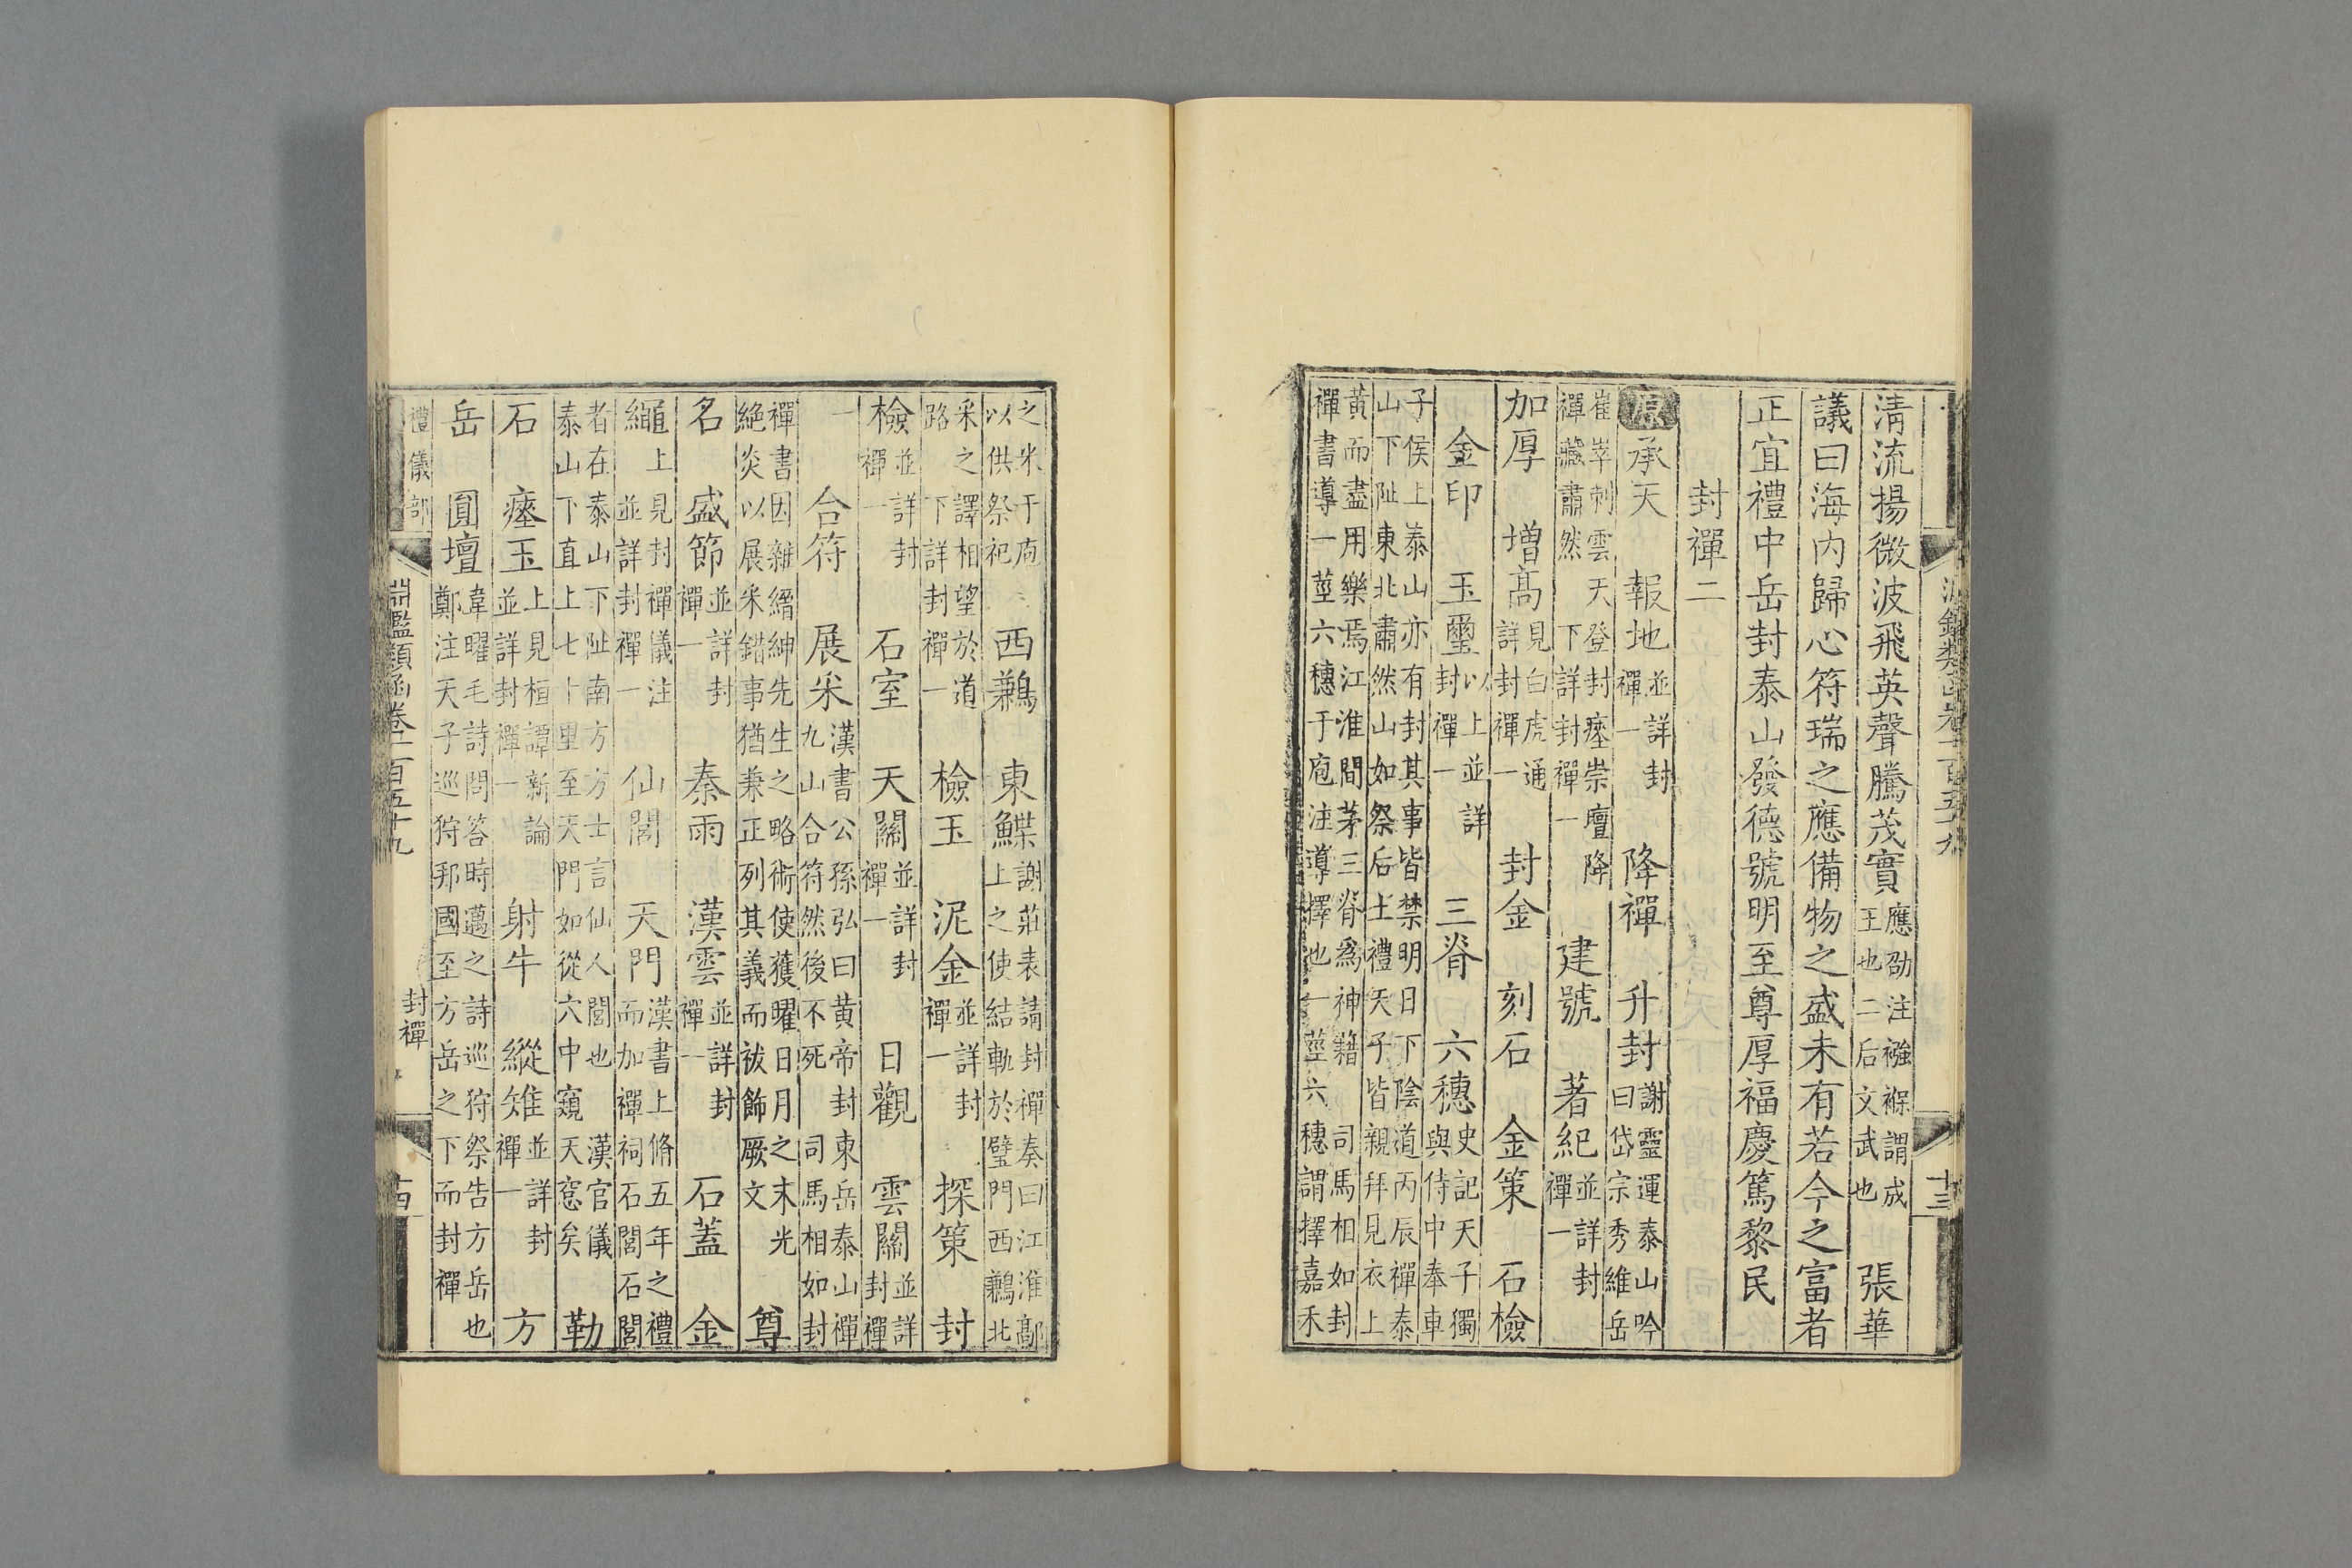 清流揚微波飛英聲騰茂實應劭注襁褓謂成王也二后文武也 張華
議曰海内歸心符瑞之應備物之盛未有若今之富者
正宜禮中岳封泰山發德號明至尊厚福慶篤黎民
封禪二
原 承天 報地並詳封禪一 降禪 升封謝靈運泰山吟曰岱宗秀維岳
崔崒刺雲天登封瘞崇壇降禪藏肅然下詳封禪一 建號 著紀並詳封禪一
加厚 增髙見白虎通詳封禪一 封金 刻石 金策 石檢
金印 玉璽以上並詳封禪一 三脊 六穗史記天子獨與侍中奉車
子侯上泰山亦有封其事皆禁明日下陰道丙辰禪泰山下阯東北肅然山如祭后土禮天子皆親拜見衣上
黃而盡用樂焉江淮間茅三脊爲神藉 司馬相如封禪書導一莖六穗于庖注導擇也一莖六穗謂擇嘉禾
之米于庖以供祭祀 西鶼 東鰈謝莊表請封禪奏曰江淮鄗上之使結軌於璧門西鶼北
采之譯相望於道路下詳封禪一 檢玉 泥金並詳封禪一 探策 封
檢並詳封禪一 石室 天關並詳封禪一 日觀 雲關並詳封禪
一 合符 展采漢書公孫弘曰黃帝封東岳泰山禪九山合符然後不死 司馬相如封
禪書因雜縉紳先生之略術使獲曜日月之末光絶炎以展采錯事猶兼正列其義而祓飾厥文 尊
名 盛節並詳封禪一 秦雨 漢雲並詳封禪一 石蓋 金
繩上見封禪儀注並詳封禪一 仙閭 天門漢書上脩五年之禮而加禪祠石閭石閭
者在泰山下阯南方方士言仙人閭也 漢官儀泰山下直上七十里至天門如從穴中窺天窻矣 勒
石 瘞玉上見桓譚新論並詳封禪一 射牛 縱雉並詳封禪一 方
岳 圓壇韋曜毛詩問答時邁之詩巡狩祭告方岳也鄭注天子巡狩邦國至方岳之下而封禪
禮儀部 淵鑑類函卷一百五十九 封禪 十四